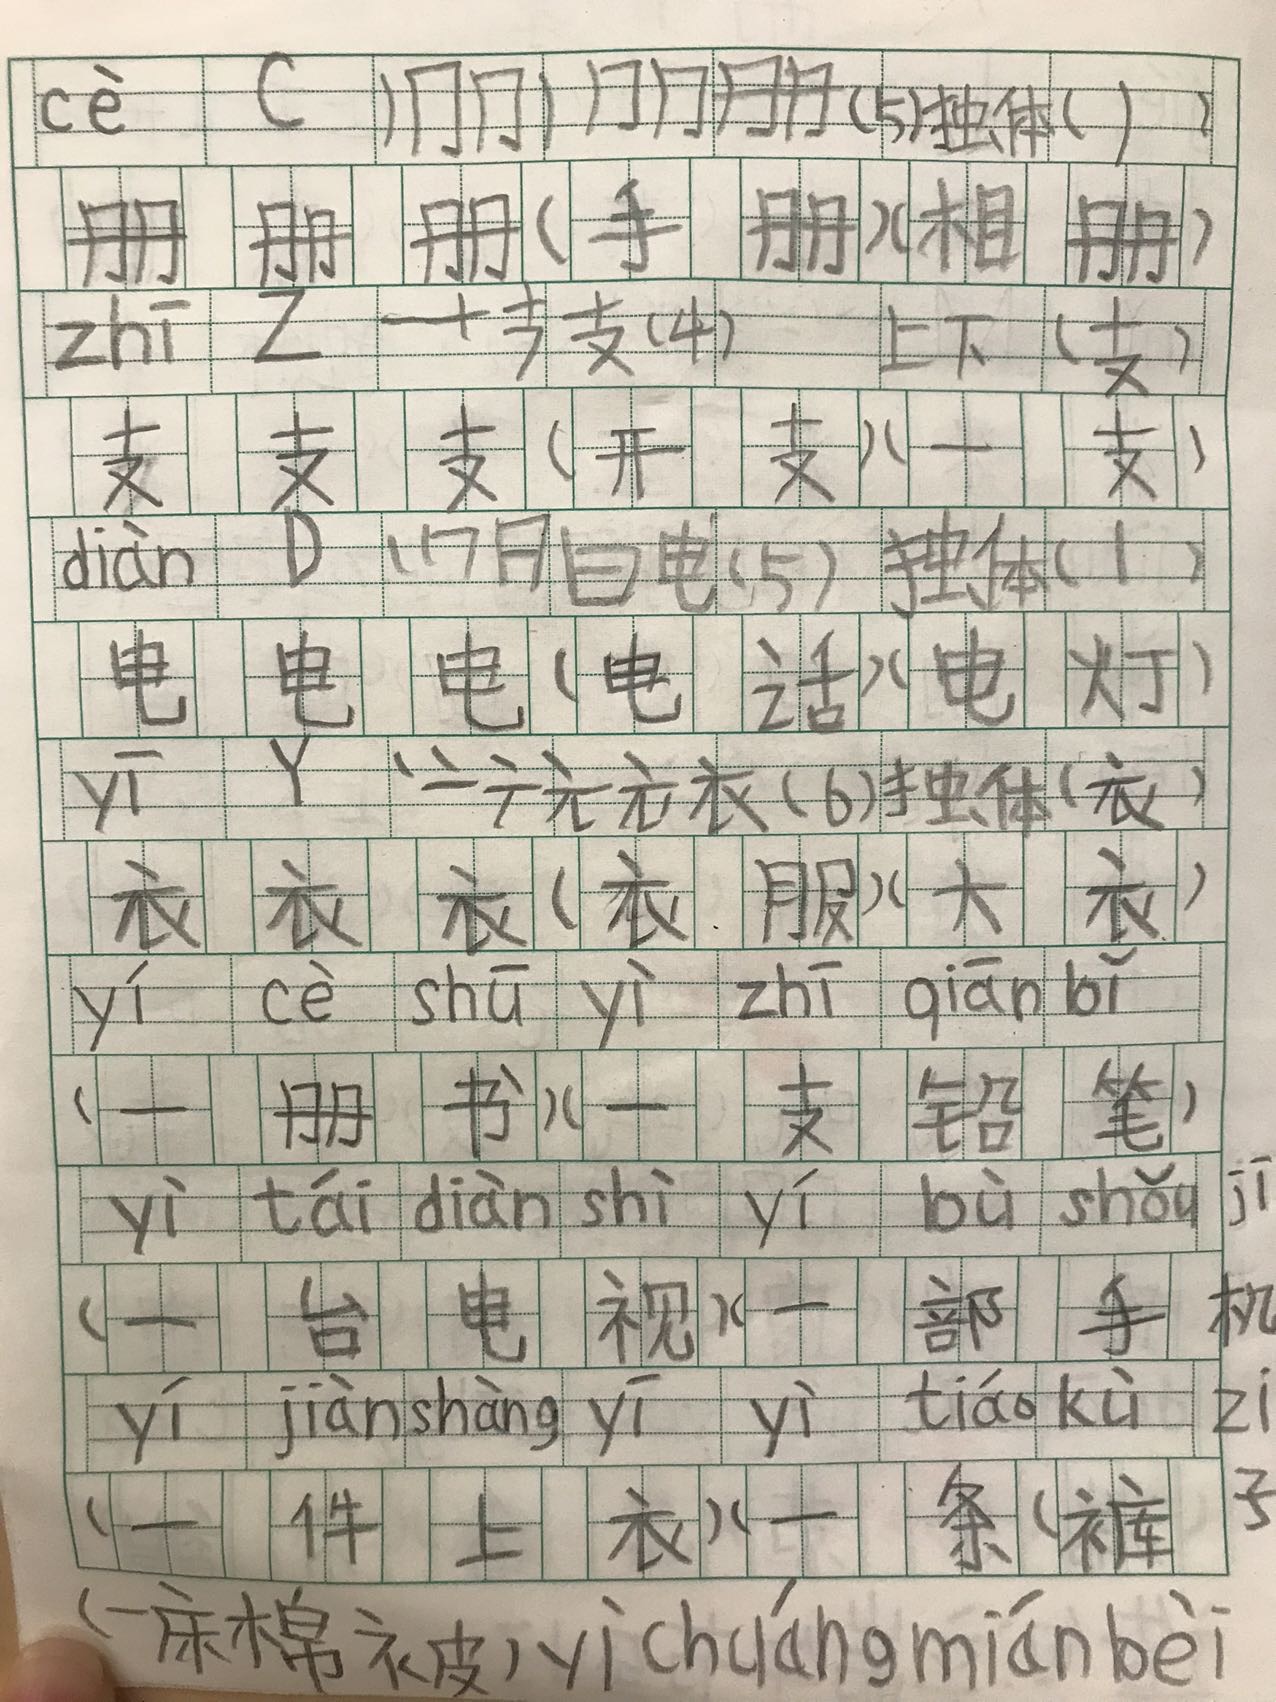 cè C 丿冂冂丿 冂冂 册 (5) 独体 (丿)
册 册 册 (手 册)(相 册)
zhī Z 一十支(4) 上下 (支)
支 支 支 (开 支)(一 支)
diàn D 丨冂日曰电(5) 独体 (丨)
电 电 电 (电 话)(电 灯)
yī Y 丶亠衣(6) 独体 (衣)
衣 衣 衣 (衣 服)(大 衣)
yí cè shū yì zhī qiān bǐ
(一 册 书)(一 支 铅 笔)
yì tái diàn shì yí bù shǒu jī
(一 台 电 视)(一 部 手 机
yí jiàn shàng yī yì tiáo kù zi
(一 件 上 衣)(一 条(裤 子
(一床棉被) yì chuáng mián bèi